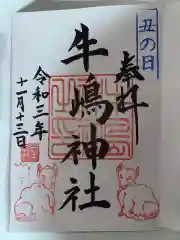 丑の日
奉拝
牛嶋神社
令和三年
十一月十三日